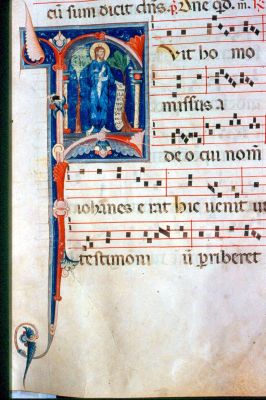 cū sum dicit dn̄s. ꝑ. Dn̄e qd̄.
uit ho mo
missus a
de o cui nom̄
iohanes e rat hic uenit
testimoni ū ꝑhiberet